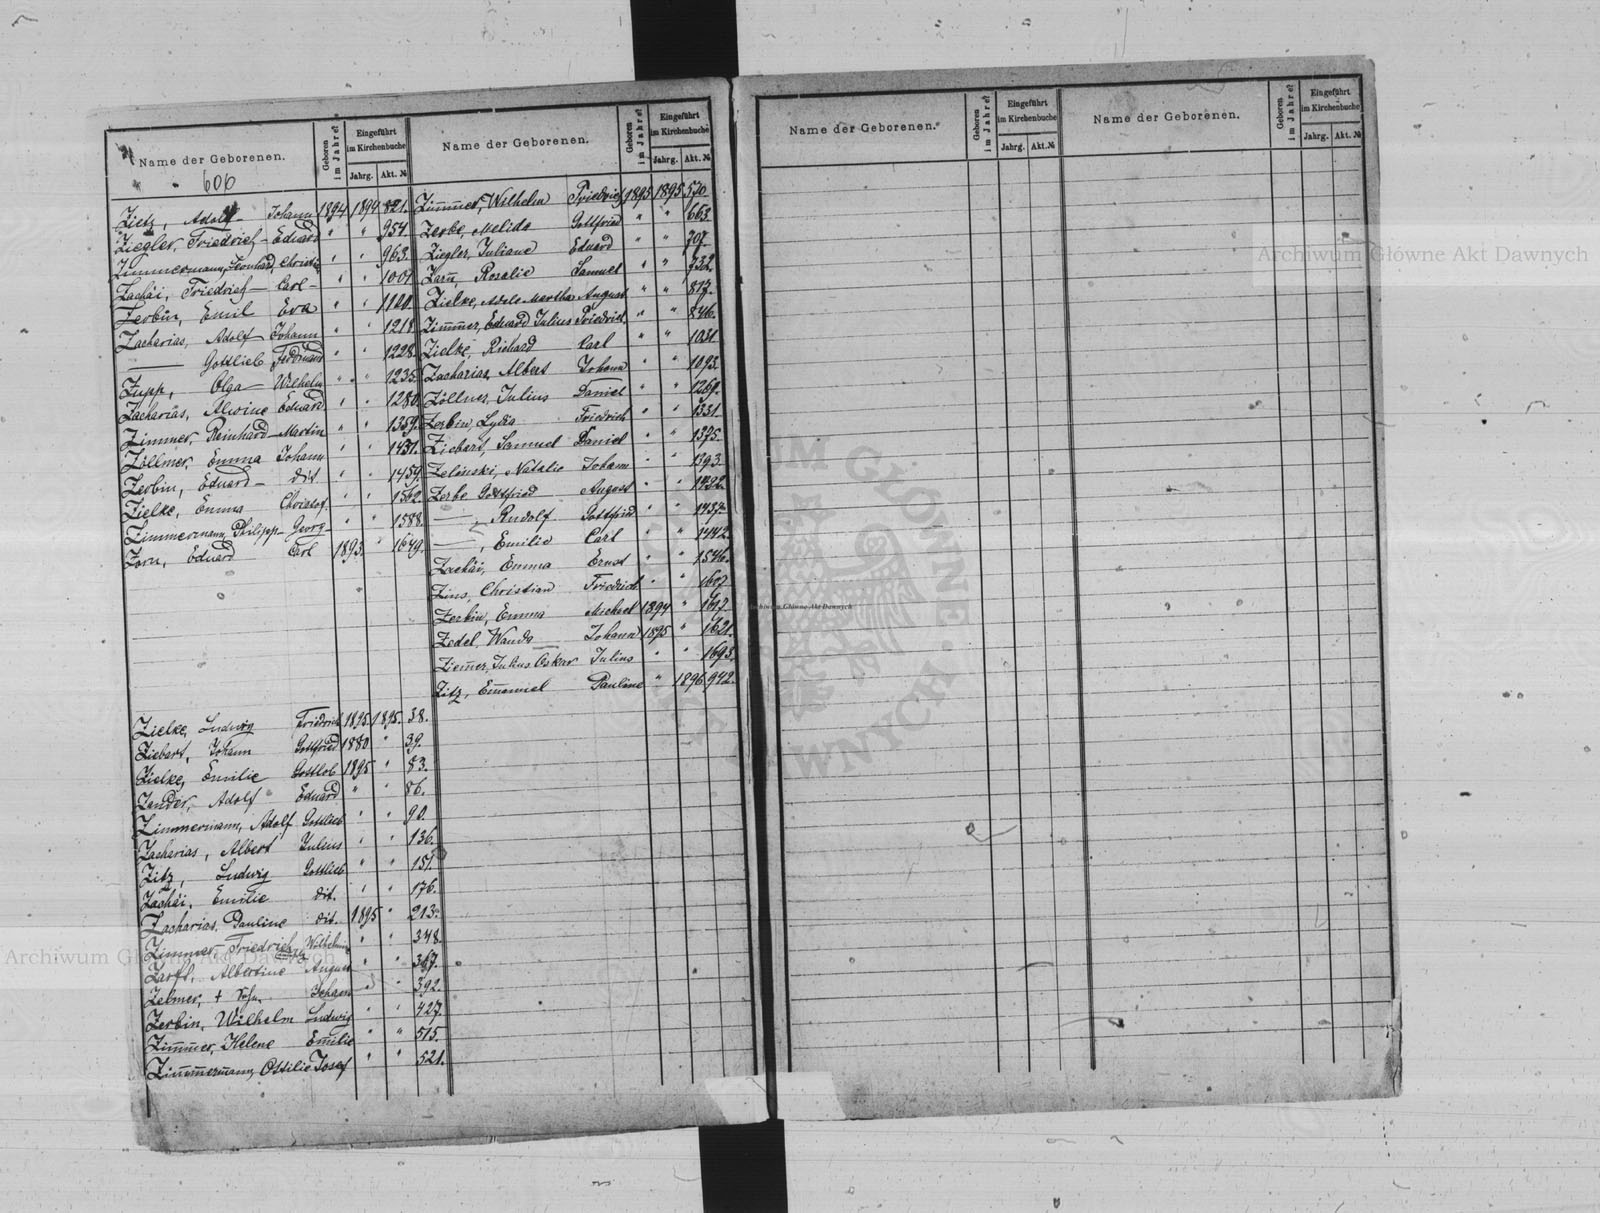 Name der Geborenen. Geboren im Jahre Eingeführt im Kirchenbuche Jahrg. Akt. №
606
Zietz, Adolf Johann 1894 1894 821.
Ziegler, Friedrich Eduard " " 954.
Zimmermann, Leonhard, Christian " " 963.
Zachäi, Friedrich Carl " " 1001.
Zerbin, Emil Eva " " 1100.
Zacharias, Adolf Johann " " 1218.
— Gottlieb Ferdinand " " 1228.
Zupp, Olga Wilhelm " " 1235.
Zacharias, Alwine Eduard " " 1280.
Zimmer, Reinhard Martin " " 1359.
Zöllmer, Emma Johann " " 1431.
Zerbin, Eduard dit " " 1459.
Zielke, Emma Christof " " 1562.
Zimmermann, Philipp Georg " " 1588.
Zorn, Eduard Carl 1893. " 1649.
Zielke, Ludwig Fridrich 1895. 1895. 38.
Ziebart, Johann Gottfried 1880 " 39.
Zielke, Emilie Gottlob 1895 " 83.
Zander, Adolf Eduard " " 86.
Zimmermann, Adolf Gottlieb " " 90.
Zacharias, Albert Julius " " 136.
Zitz, Ludwig Gottlieb " " 157.
Zachäi, Emilie dit. " " 176.
Zacharias, Pauline dit. 1895 " 213.
Zimmer, Friedrich Wilhelm " " 348.
Zarfl, Albertine August " " 367.
Zelmer, † Sohn. Johann " " 392.
Zerbin, Wilhelm Ludwig " " 427.
Zimmer, Helene Emilie " " 515.
Zimmermann, Ottilie Josef " " 521.
Name der Geborenen. Geboren im Jahre Eingeführt im Kirchenbuche Jahrg. Akt. №
Zimmer, Wilhelm Friedrich 1895 1895 530.
Zerbe, Melida Gottfried " " 663.
Ziegler, Juliane Eduard " " 707.
Zarn, Rosalie Samuel " " 732.
Zielke, Adele Martha August " " 817.
Zimmer, Eduard Julius Friedrich " " 846.
Zielke, Richard Carl " " 1031
Zacharias, Albert Johann " " 1093.
Zöllner, Julius Daniel " " 1269.
Zerbin, Lydia Friedrich " " 1331.
Ziebart, Samuel Daniel " " 1375.
Zelinski, Natalie Johann " " 1393.
Zerbe Gottfried August " " 1432.
—, Rudolf Gottfried " " 1437.
—, Emilie Carl " " 1442.
Zachäi, Emma Ernst " " 1546.
Zins, Christian Friedrich " " 1607
Zerbin, Emma Michael 1894 " 1617.
Zedel, Wanda Johann 1895 " 1621.
Ziemer, Julius Oskar Julius " " 1693.
Zitz, Emanuel Pauline " 1896. 942.
Name der Geborenen. Geboren im Jahre Eingeführt im Kirchenbuche Jahrg. Akt. №
Name der Geborenen. Geboren im Jahre Eingeführt im Kirchenbuche Jahrg. Akt. №
Archiwum Główne Akt Dawnych
Archiwum Główne Akt Dawnych
Archiwum Główne Akt Dawnych